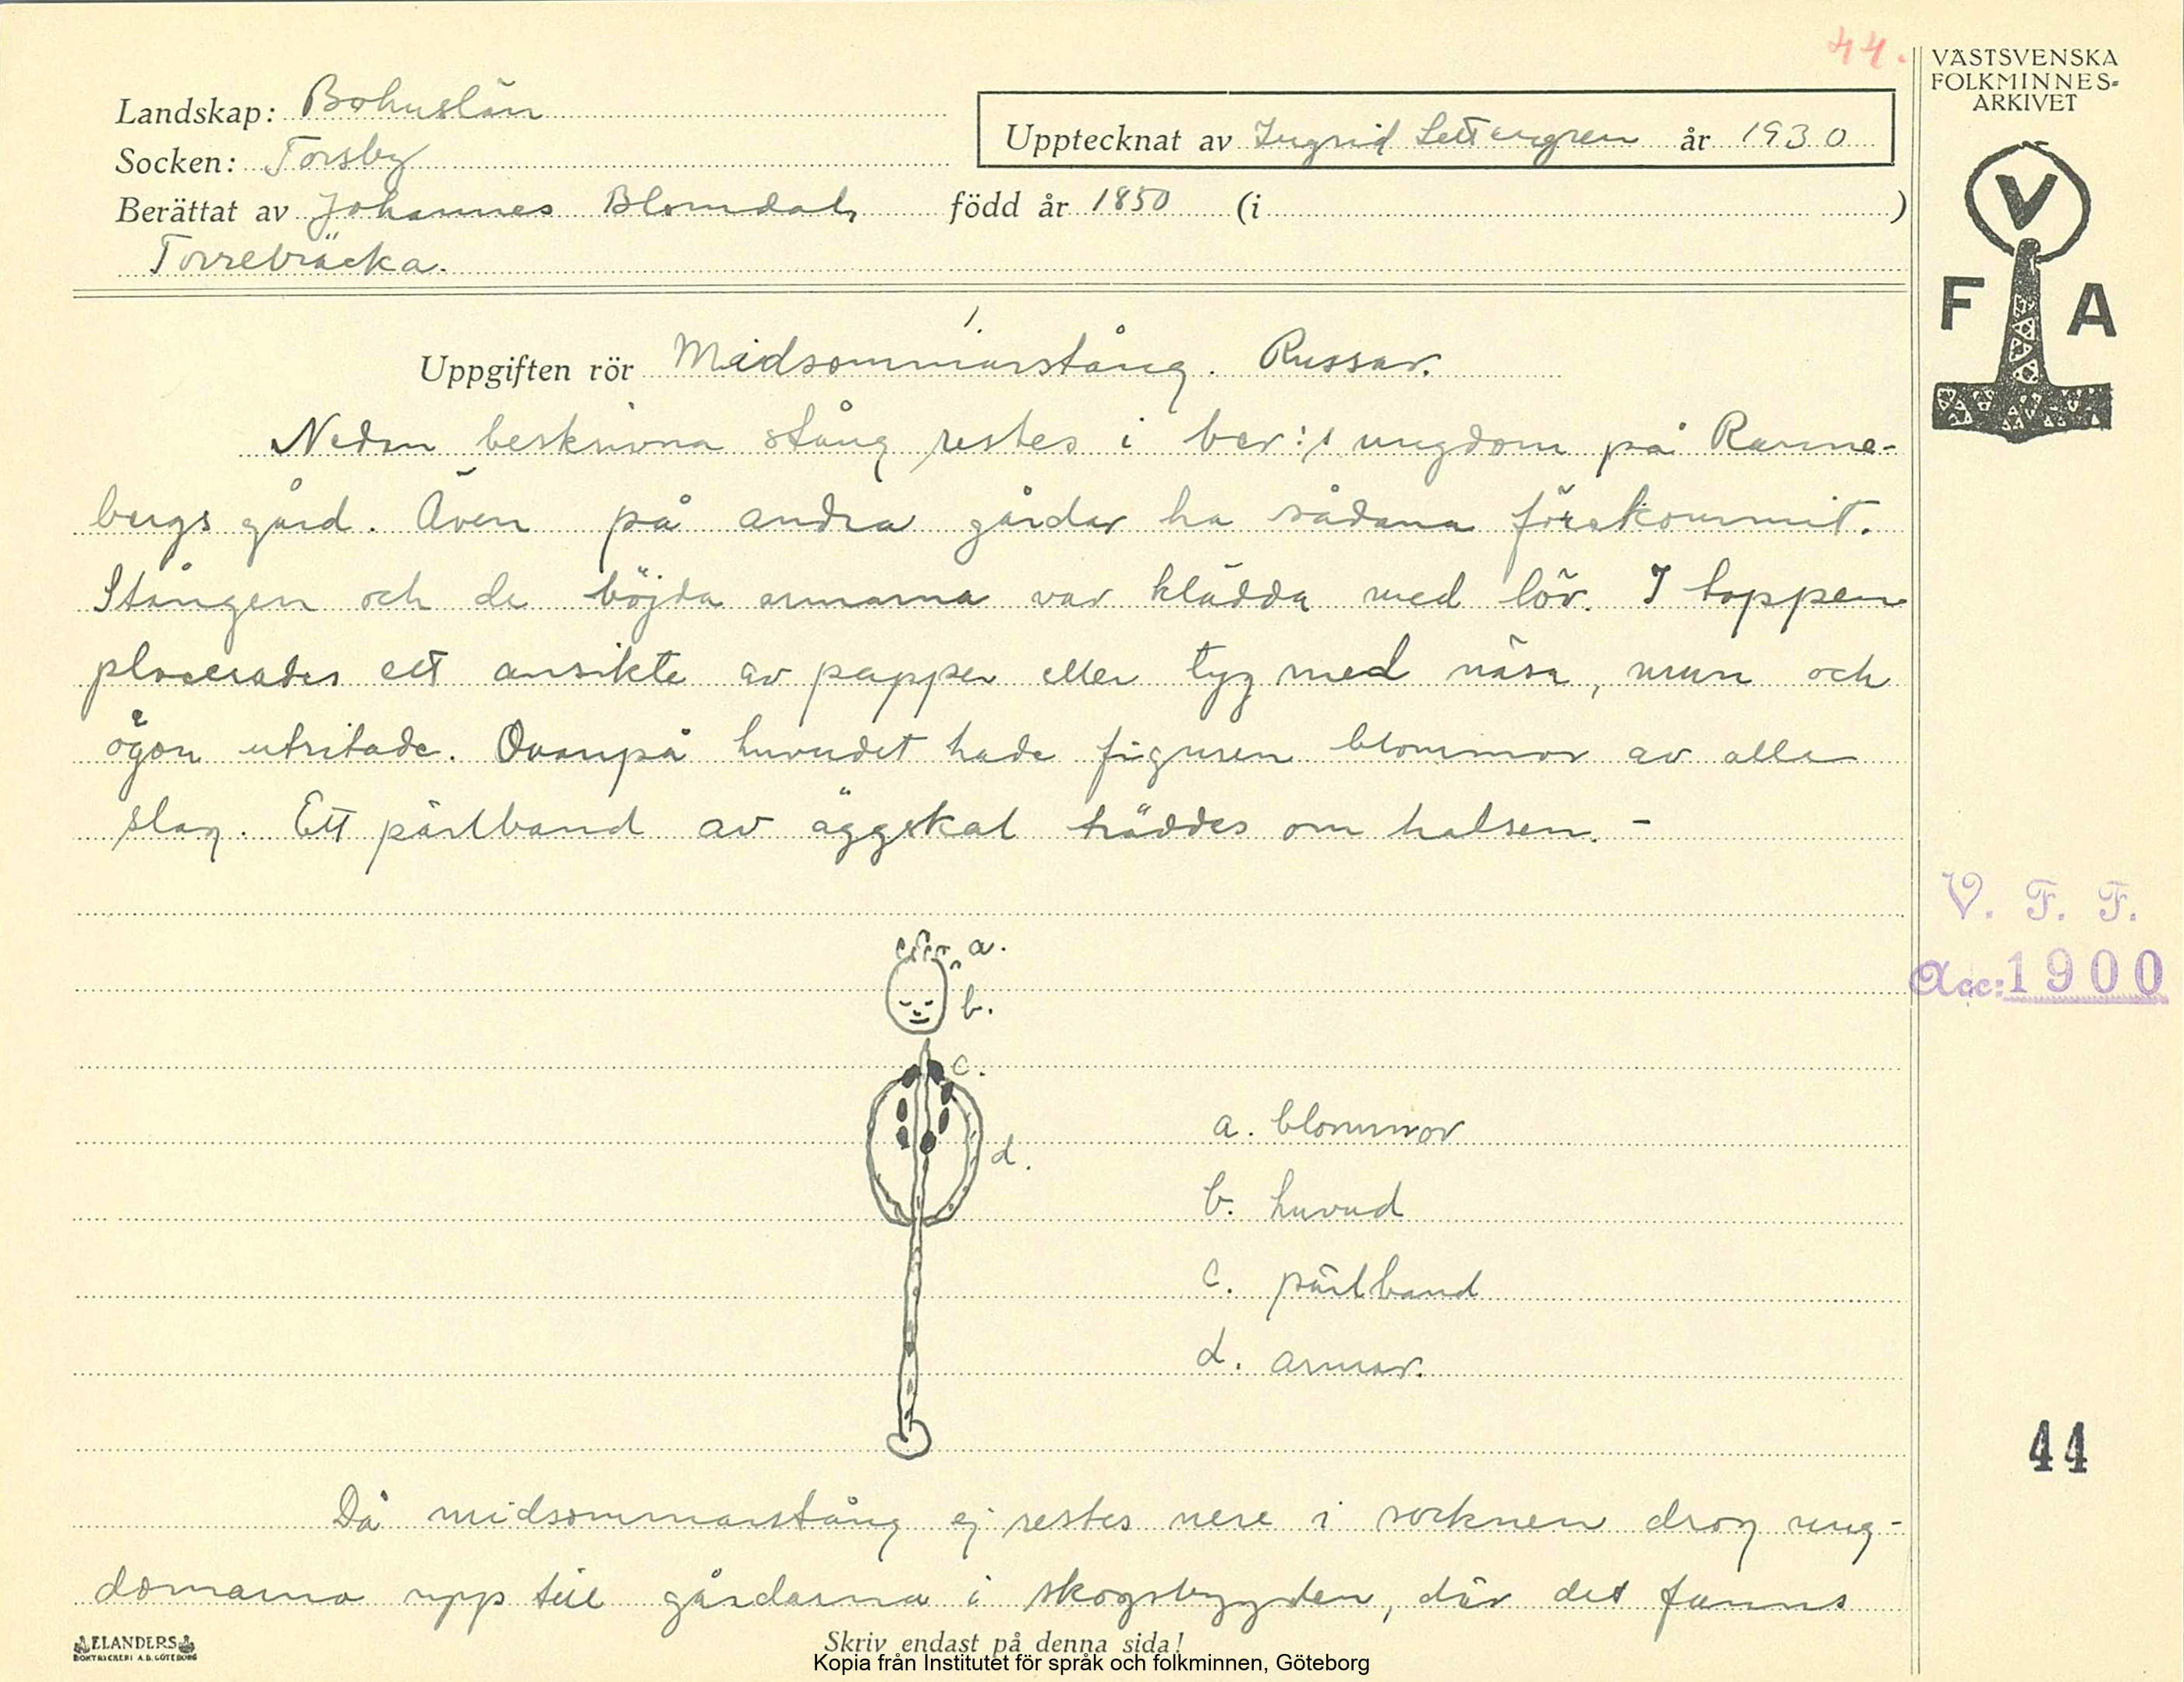 44.
VÄSTSVENSKA
FOLKMINNES-
ARKIVET
Landskap: Bohuslän
Upptecknat av Ingrid år 1930
Socken: Torsby
Berättat av Johannes Blomdal, född år 1850 (i )
Torrebräcka.
V
F A
1.
Uppgiften rör Midsommarstång. Russar.
Nedan beskrivna stång restes i ber:s ungdom på Ranne-
bergs gård. Även på andra gårdar ha sådana förekommit.
Stången och de böjda armarna var klädda med löv. I toppen
placerades ett ansikte av papper eller tyg med näsa, mun och
ögon utritade. Ovanpå huvudet hade figuren blommor av alla
slag. Ett pärlband av äggskal träddes om halsen. -
V. F. F.
Acc: 1900
a.
b.
c.
d.
a. blommor
b. huvud
c. pärlband
d. armar.
44
Då midsommarstång ej restes nere i socknen drog ung-
domarna upp till gårdarna i skogsbygden, där det fanns
ELANDERS
BOKTRYCKERI A.B. GÖTEBORG
Skriv endast på denna sida!
Kopia från Institutet för språk och folkminnen, Göteborg